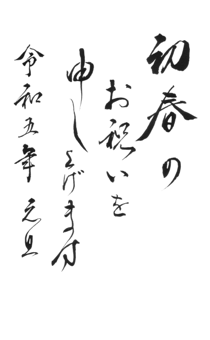 初春の
お祝いを
申し上げます
令和五年 元旦